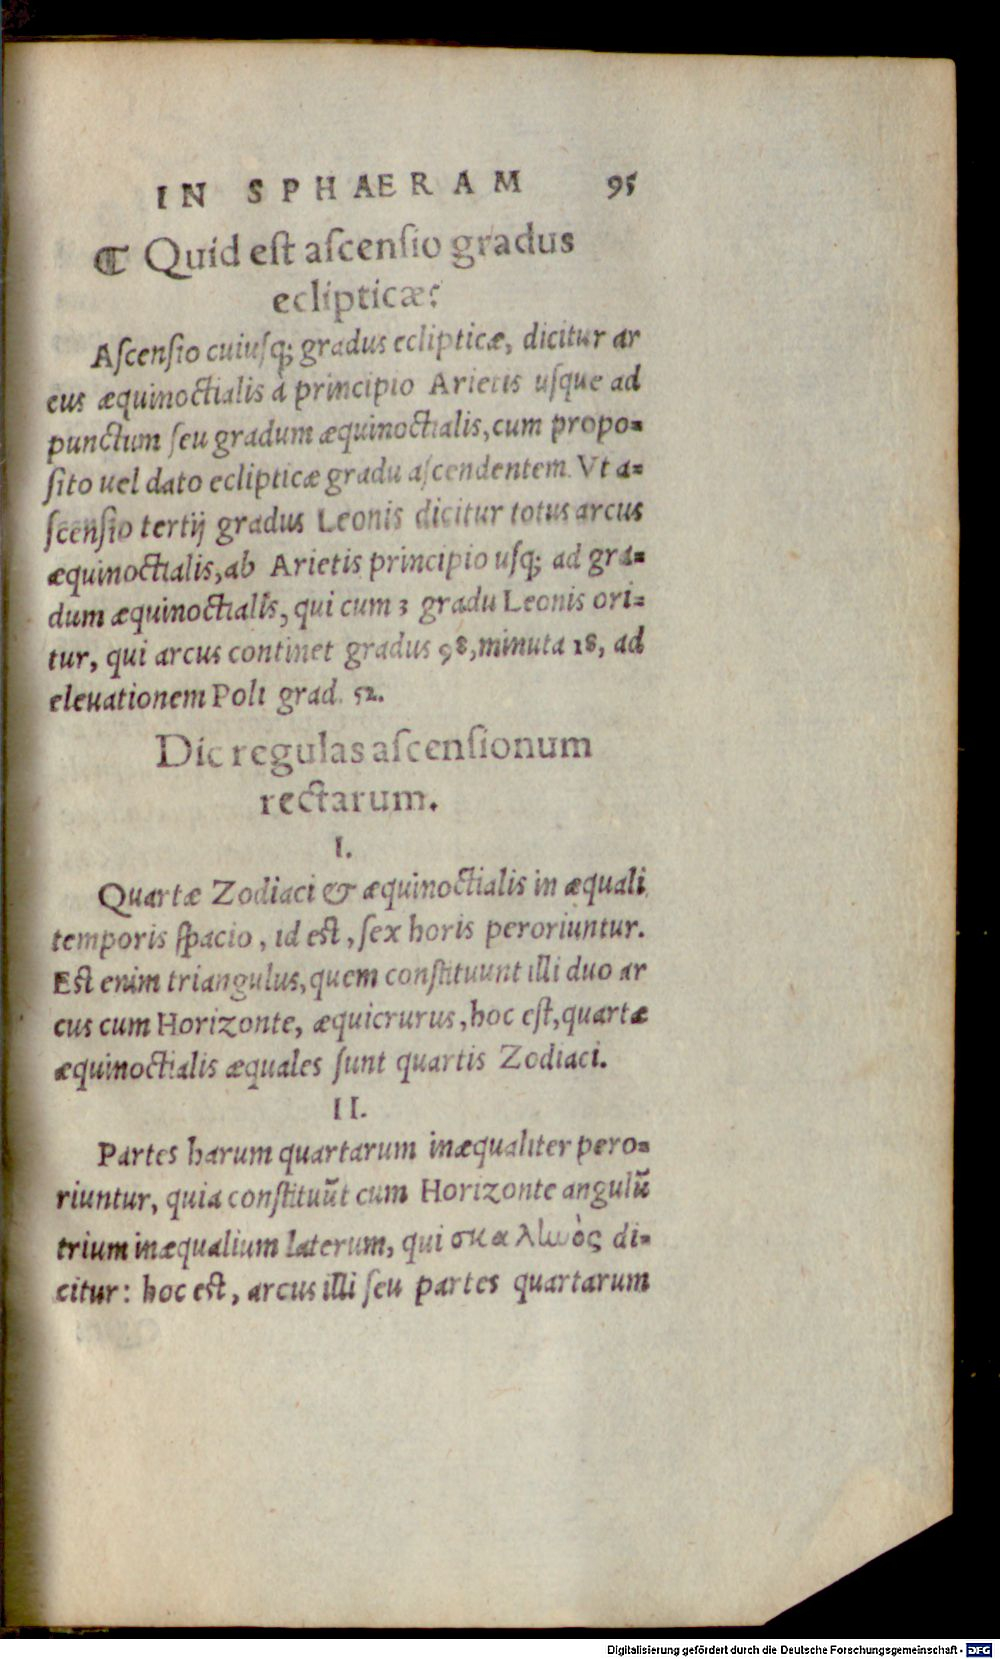 IN SPHAERAM 95
¶ Quid est ascensio gradus
eclipticæ?
Ascensio cuiusq; gradus eclipticæ, dicitur ar
cus æquinoctialis à principio Arietis usque ad
punctum seu gradum æquinoctialis, cum propo=
sito uel dato eclipticæ gradu ascendentem. Vt a=
scensio tertij gradus Leonis dicitur totus arcus
æquinoctialis, ab Arietis principio usq; ad gra=
dum æquinoctialis, qui cum 3 gradu Leonis ori=
tur, qui arcus continet gradus 98, minuta 18, ad
eleuationem Poli grad. 52.
Dic regulas ascensionum
rectarum.
I.
Quartæ Zodiaci & æquinoctialis in æquali
temporis spacio, id est, sex horis peroriuntur.
Est enim triangulus, quem constituunt illi duo ar
cus cum Horizonte, æquicrurus, hoc est, quartæ
æquinoctialis æquales sunt quartis Zodiaci.
II.
Partes harum quartarum inæqualiter pero=
riuntur, quia constituũt cum Horizonte angulũ
trium inæqualium laterum, qui σκαλωὸς di=
citur: hoc est, arcus illi seu partes quartarum
Digitalisierung gefördert durch die Deutsche Forschungsgemeinschaft - DFG